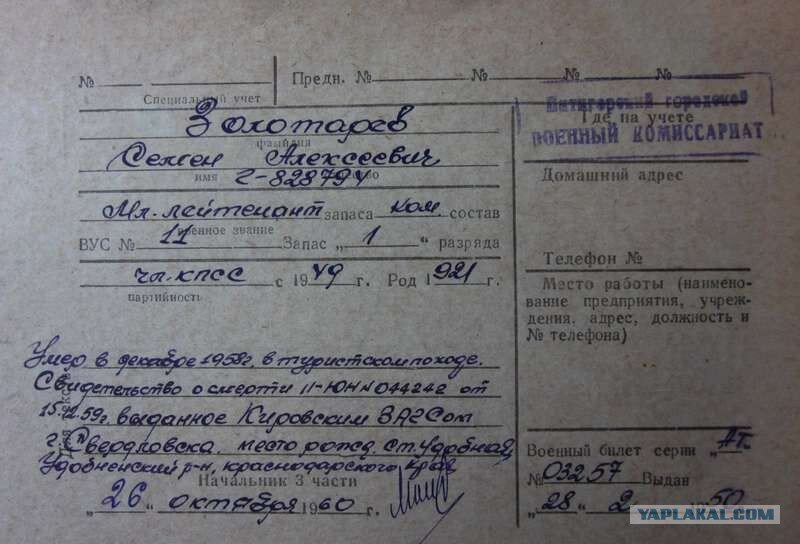 № Предн. № № № №
Специальный учет
Золотарев
фамилия
Семен Алексеевич
имя
Г-828794
Мл. лейтенант запаса ком состав
военное звание
ВУС № 11 Запас „1“ разряда
чл. КПСС с 1949 г. Род 1921 г.
партийность
Умер в декабре 1958г. в туристском походе.
Свидетельство о смерти II-ЮН N 044242 от
59г. выданное Кировским ЗАГСом
г. Свердловска. место рожд. ст. Удобная,
Удобненский р-н, краснодарского края
Начальник 3 части
„26“ октября 1960 г.
Пятигорский городской
ВОЕННЫЙ КОМИССАРИАТ
Где на учете
Домашний адрес
Телефон №
Место работы (наимено-
вание предприятия, учреж-
дения, адрес, должность и
№ телефона)
Военный билет серии
№ 03257 Выдан
„28“ 2 50
YAPLAKAL.COM